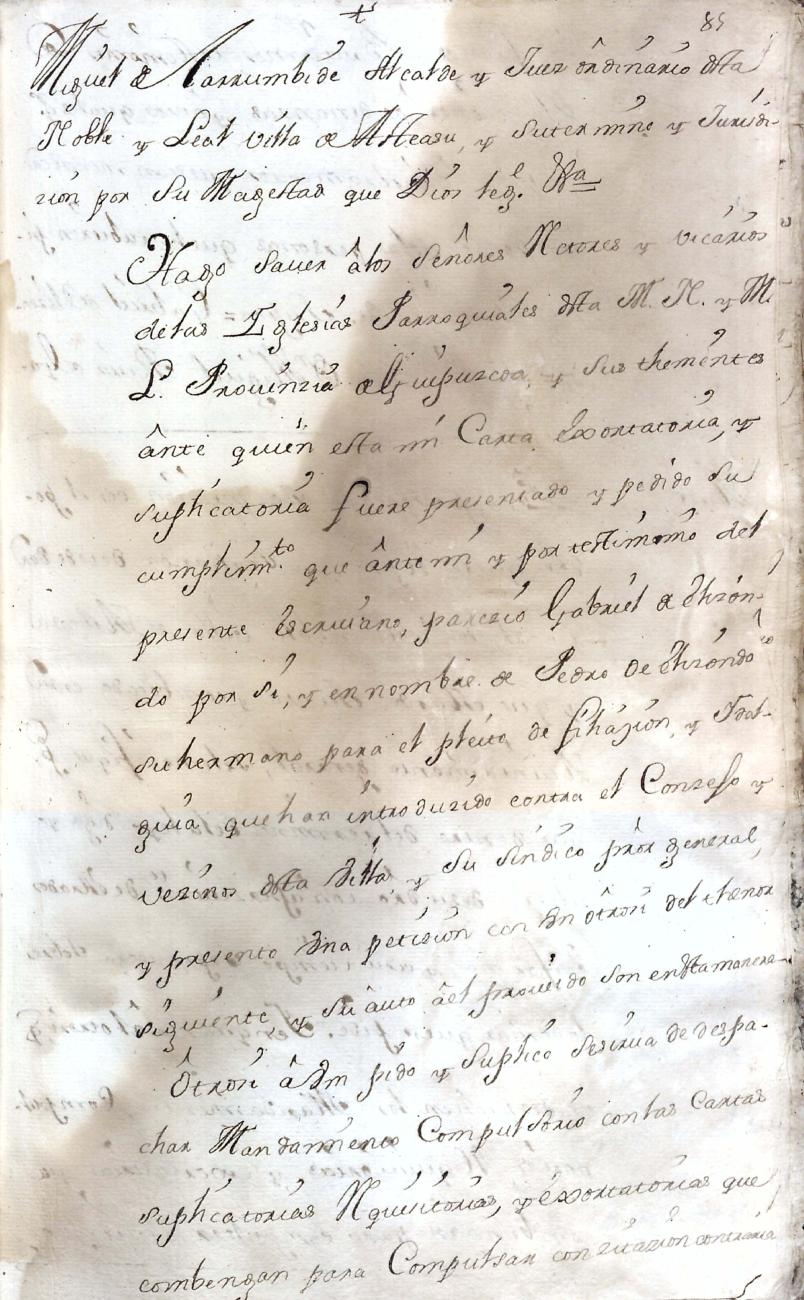 85
Miguel de Narrumbide Alcalde y Juez ôrdinario dsta
Noble y Leal villa de Asteasu, y sutermino y Jurisdi-
zion por Su Magestad que Dios legue. Vª
Hago saver âlos Señores Rectores y vicarios
delas Iglesias Parroquiales dsta M. N. y M.
L. Provinzia de Guipuzcoa, y sus thenientes
ânte quien esta mi Carta Exortatoria, y
suplicatoria fuere presentado y pedido su
cumplimto. que ânte mi y por testimonio del
presente Escrivano, parezio Gabriel de Elizon-
do por si, y en nombre de Pedro de Elizondo
su hermano para el pleito de filiazion, y Idal-
guia que han introduzido contra el Conzejo y
vezinos dsta villa, y su sindico prôr general,
y presento vna petizion con vn ôtrosi del thenor
siguiente, y su auto âel proveido son enstamanera
Ôtrosi â Vm pido y suplico sesirva de despa-
char Mandamiento Compulsorio con las Cartas
suplicatorias Requisitorias, y êxortatorias que
combengan para Compulsar con zitazion contraria